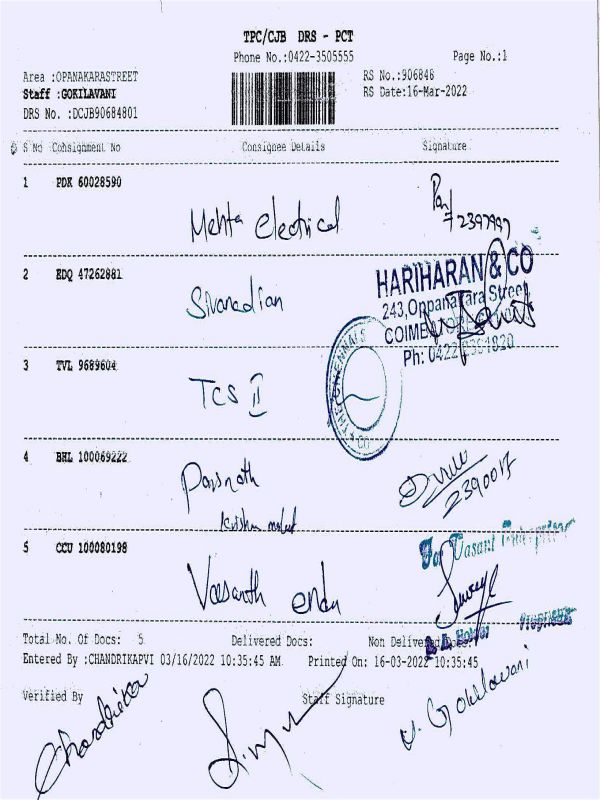 TPC/CJB DRS - PCT
Phone No.:0422-3505555
Page No.:1
Area :OPANAKARASTREET
RS No.:906848
Staff :GOKILAVANI
RS Date:16-Mar-2022
DRS No. :DCJB90684801
S No Consignment No Consignee Details Signature
1 PDK 60028590
Mehta Electrical
2397997
2 EDQ 47262881
HARIHARAN & CO
243,Oppanakara Street,
3 TVL 9689604
TCS II
4 BHL 100069222
2390017
5 CCU 100080198
Vasant Enterprises
Total No. Of Docs: 5 Delivered Docs: Non Delivered Docs:
Entered By :CHANDRIKAPVI 03/16/2022 10:35:45 AM Printed On: 16-03-2022 10:35:45
Verified By Staff Signature
Chandrika
V. Gokilavani